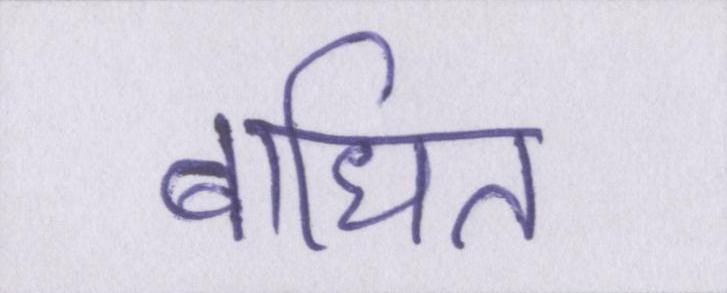 बाधित